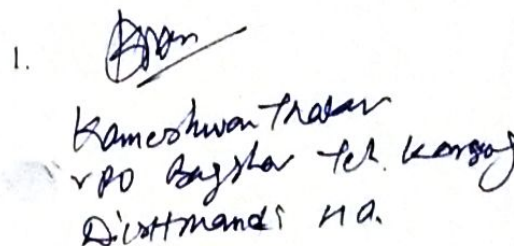 1.
Kameshwar Thakur
VPO Bagshar Teh. Karsog
Distt Mandi H.P.